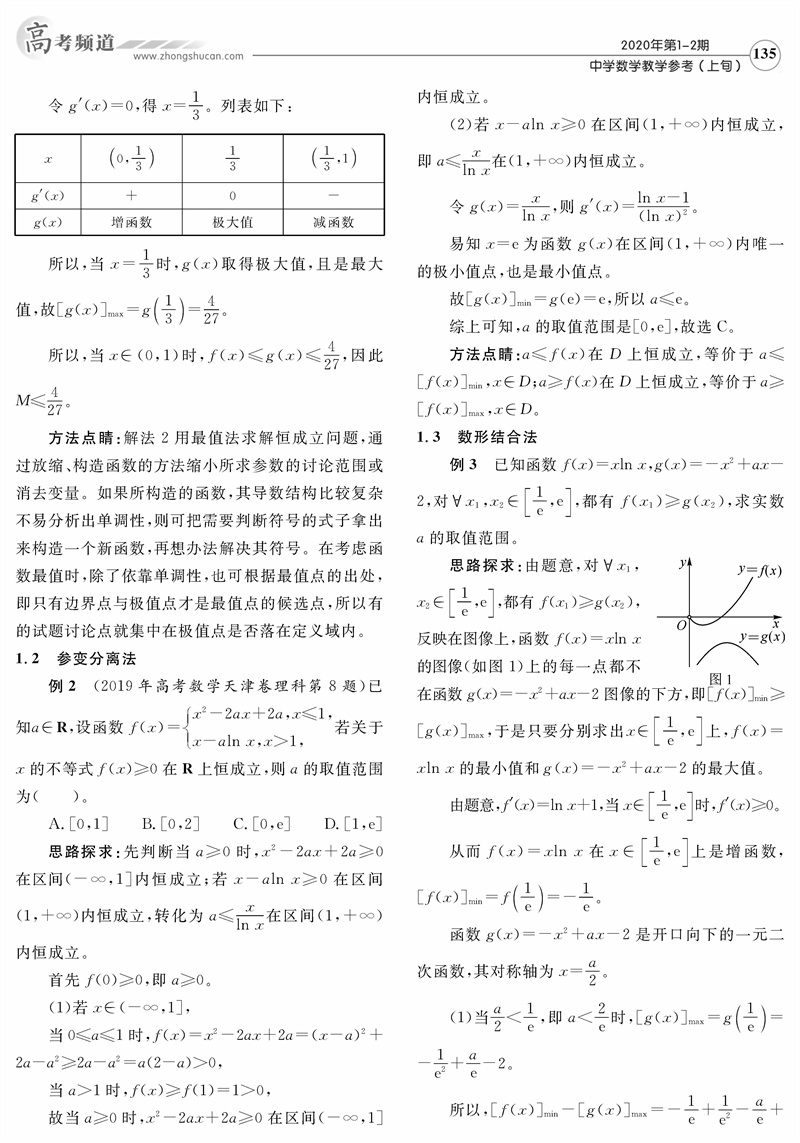 高考频道
www.zhongshucan.com
2020年第1-2期
中学数学教学参考（上旬）
135
令 g′(x)=0,得 x=1/3。列表如下:
x (0,1/3) 1/3 (1/3,1)
g′(x) + 0 −
g(x) 增函数 极大值 减函数
所以,当 x=1/3 时,g(x)取得极大值,且是最大
值,故[g(x)]max=g(1/3)=4/27。
所以,当 x∈(0,1)时,f(x)≤g(x)≤4/27,因此
M≤4/27。
方法点睛:解法 2 用最值法求解恒成立问题,通
过放缩、构造函数的方法缩小所求参数的讨论范围或
消去变量。如果所构造的函数,其导数结构比较复杂
不易分析出单调性,则可把需要判断符号的式子拿出
来构造一个新函数,再想办法解决其符号。在考虑函
数最值时,除了依靠单调性,也可根据最值点的出处,
即只有边界点与极值点才是最值点的候选点,所以有
的试题讨论点就集中在极值点是否落在定义域内。
1.2 参变分离法
例 2 (2019 年高考数学天津卷理科第 8 题)已
知a∈R,设函数 f(x)={x²−2ax+2a,x≤1, x−aln x,x>1, 若关于
x 的不等式 f(x)≥0 在 R 上恒成立,则 a 的取值范围
为( )。
A.[0,1] B.[0,2] C.[0,e] D.[1,e]
思路探求:先判断当 a≥0 时,x²−2ax+2a≥0
在区间(−∞,1]内恒成立;若 x−aln x≥0 在区间
(1,+∞)内恒成立,转化为 a≤x/ln x在区间(1,+∞)
内恒成立。
首先 f(0)≥0,即 a≥0。
(1)若 x∈(−∞,1],
当 0≤a≤1 时,f(x)=x²−2ax+2a=(x−a)²+
2a−a²≥2a−a²=a(2−a)>0,
当 a>1 时,f(x)≥f(1)=1>0,
故当 a≥0 时,x²−2ax+2a≥0 在区间(−∞,1]
内恒成立。
(2)若 x−aln x≥0 在区间(1,+∞)内恒成立,
即 a≤x/ln x在(1,+∞)内恒成立。
令 g(x)=x/ln x,则 g′(x)=(ln x−1)/(ln x)²。
易知 x=e 为函数 g(x)在区间(1,+∞)内唯一
的极小值点,也是最小值点。
故[g(x)]min=g(e)=e,所以 a≤e。
综上可知,a 的取值范围是[0,e],故选 C。
方法点睛:a≤f(x)在 D 上恒成立,等价于 a≤
[f(x)]min,x∈D;a≥f(x)在 D 上恒成立,等价于 a≥
[f(x)]max,x∈D。
1.3 数形结合法
例 3 已知函数 f(x)=xln x,g(x)=−x²+ax−
2,对∀x₁,x₂∈[1/e,e],都有 f(x₁)≥g(x₂),求实数
a 的取值范围。
思路探求:由题意,对∀x₁,
x₂∈[1/e,e],都有 f(x₁)≥g(x₂),
反映在图像上,函数 f(x)=xln x
的图像(如图 1)上的每一点都不
y
y=f(x)
O
x
y=g(x)
图 1
在函数 g(x)=−x²+ax−2 图像的下方,即[f(x)]min≥
[g(x)]max,于是只要分别求出x∈[1/e,e]上,f(x)=
xln x 的最小值和 g(x)=−x²+ax−2 的最大值。
由题意,f′(x)=ln x+1,当 x∈[1/e,e]时,f′(x)≥0。
从而 f(x)=xln x 在 x∈[1/e,e]上是增函数,
[f(x)]min=f(1/e)=−1/e。
函数 g(x)=−x²+ax−2 是开口向下的一元二
次函数,其对称轴为 x=a/2。
(1)当a/2<1/e,即 a<2/e时,[g(x)]max=g(1/e)=
−1/e²+a/e−2。
所以,[f(x)]min−[g(x)]max=−1/e+1/e²−a/e+